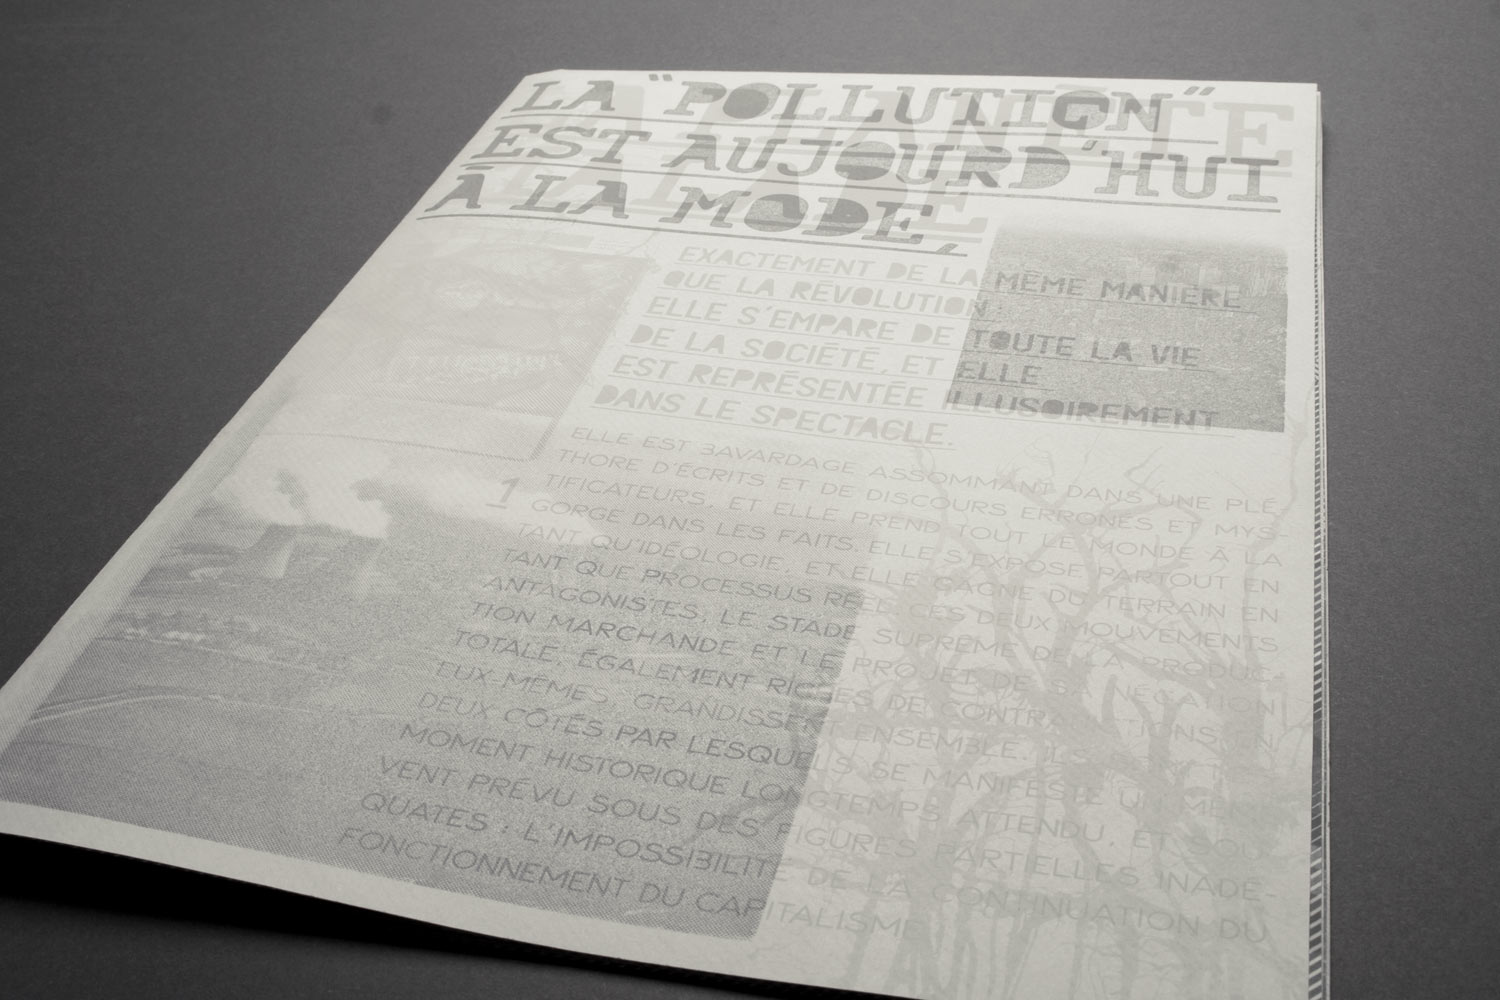 LA "POLLUTION"
EST AUJOURD'HUI
À LA MODE,
LA PLANÈTE
MALADE
EXACTEMENT DE LA MÊME MANIÈRE
QUE LA RÉVOLUTION :
ELLE S'EMPARE DE TOUTE LA VIE
DE LA SOCIÉTÉ, ET ELLE
EST REPRÉSENTÉE ILLUSOIREMENT
DANS LE SPECTACLE.
ELLE EST BAVARDAGE ASSOMMANT DANS UNE PLÉ-
THORE D'ÉCRITS ET DE DISCOURS ERRONÉS ET MYS-
TIFICATEURS, ET ELLE PREND TOUT LE MONDE À LA
1
GORGE DANS LES FAITS. ELLE S'EXPOSE PARTOUT EN
TANT QU'IDÉOLOGIE, ET ELLE GAGNE DU TERRAIN EN
TANT QUE PROCESSUS RÉEL. CES DEUX MOUVEMENTS
ANTAGONISTES, LE STADE SUPRÊME DE LA PRODUC-
TION MARCHANDE ET LE PROJET DE SA NÉGATION
TOTALE, ÉGALEMENT RICHES DE CONTRADICTIONS EN
EUX-MÊMES, GRANDISSENT ENSEMBLE. ILS SONT LES
DEUX CÔTÉS PAR LESQUELS SE MANIFESTE UN MÊME
MOMENT HISTORIQUE LONGTEMPS ATTENDU, ET SOU-
VENT PRÉVU SOUS DES FIGURES PARTIELLES INADÉ-
QUATES : L'IMPOSSIBILITÉ DE LA CONTINUATION DU
FONCTIONNEMENT DU CAPITALISME